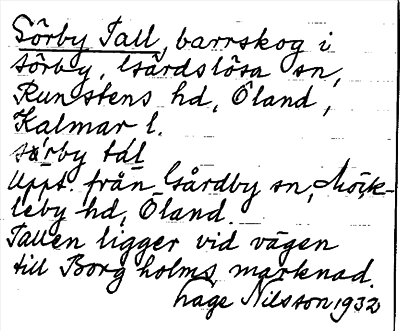 Sörby Tall, barrskog i
Sörby, Gärdslösa sn,
Runstens hd, Öland,
Kalmar l.
sörby tál
Uppt. från Gårdby sn, Möck-
leby hd, Öland.
Tallen ligger vid vägen
till Borgholms marknad.
Hage Nilsson 1932